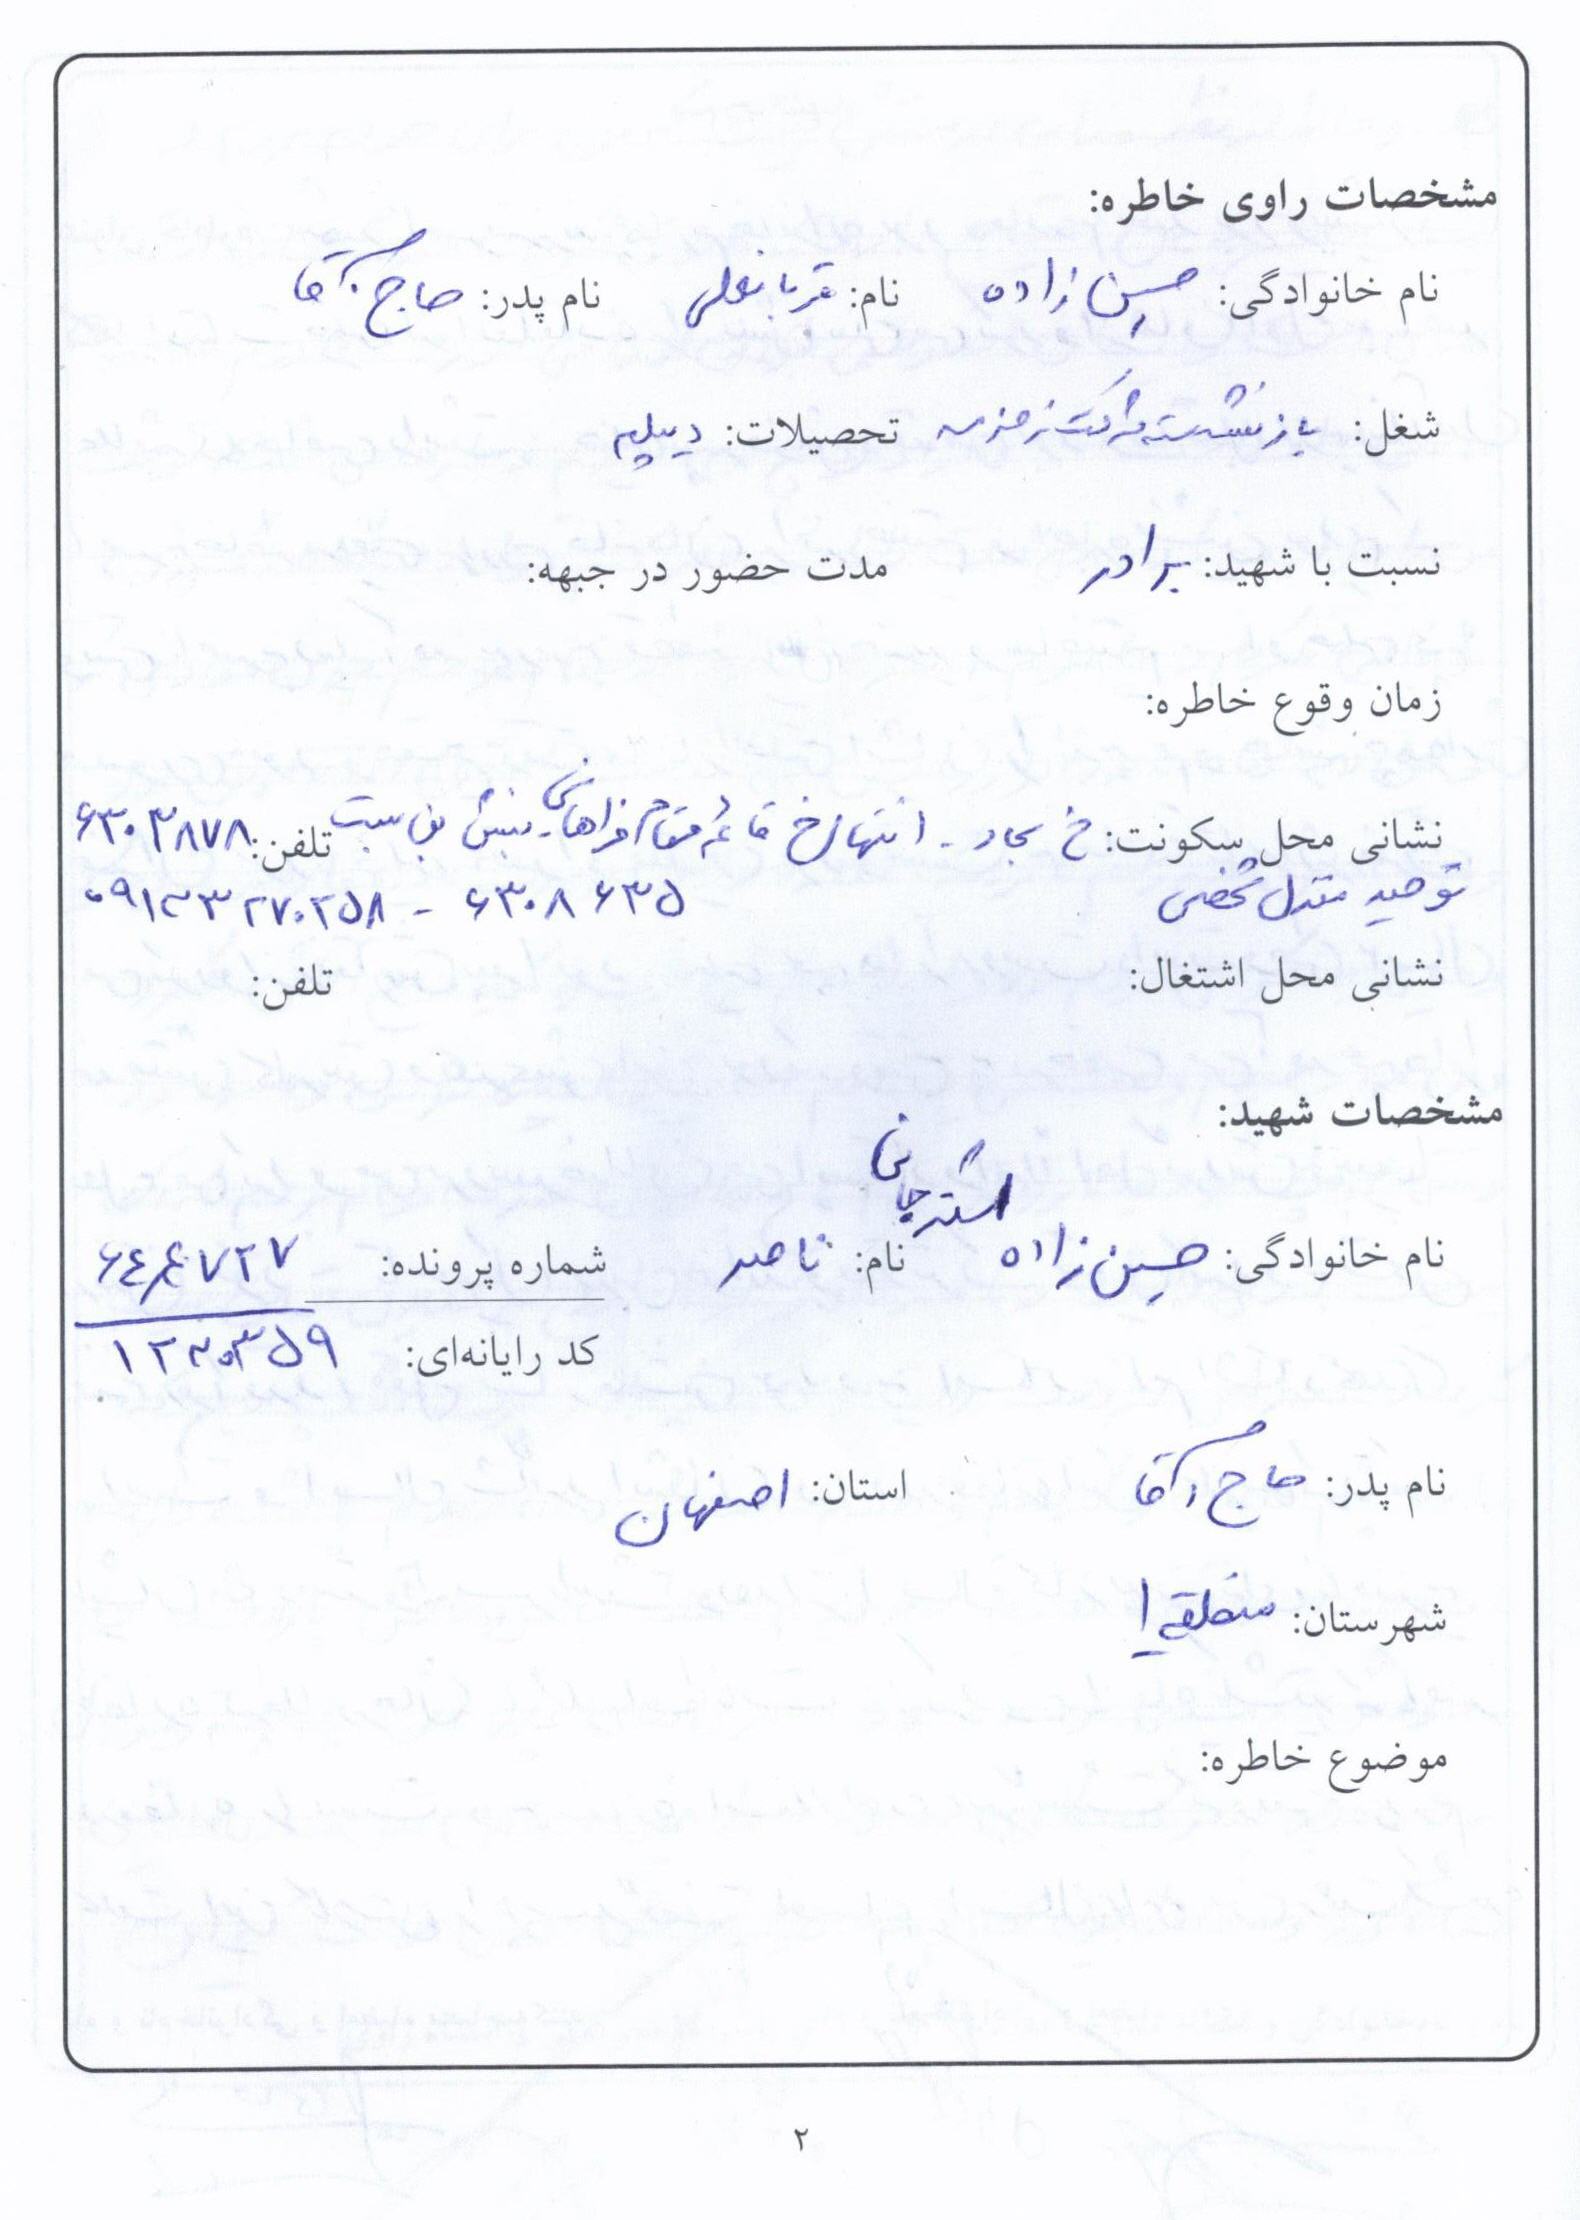 مشخصات راوی خاطره:
نام خانوادگی: حسین زاده نام: قربانعلی نام پدر: حاج آقا
شغل: بازنشسته شرکت زمزم تحصیلات: دیپلم
نسبت با شهید: برادر مدت حضور در جبهه:
زمان وقوع خاطره:
نشانی محل سکونت: خ - انتهای خ قائم مقام فراهانی - نبش بن بست تلفن: ۶۳۰۳۸۷۸
توحید منزل شخصی ۶۳۰۸۶۳۵ - ۰۹۱۳۳۲۷۰۲۵۸
نشانی محل اشتغال: تلفن:
مشخصات شهید:
نام خانوادگی: حسین زاده اشترجانی نام: ناصر شماره پرونده: ۶۴۶۷۲۷
کد رایانه‌ای: ۱۲۳۰۳۵۹
نام پدر: حاج آقا استان: اصفهان
شهرستان: منطقه ۱
موضوع خاطره:
۲